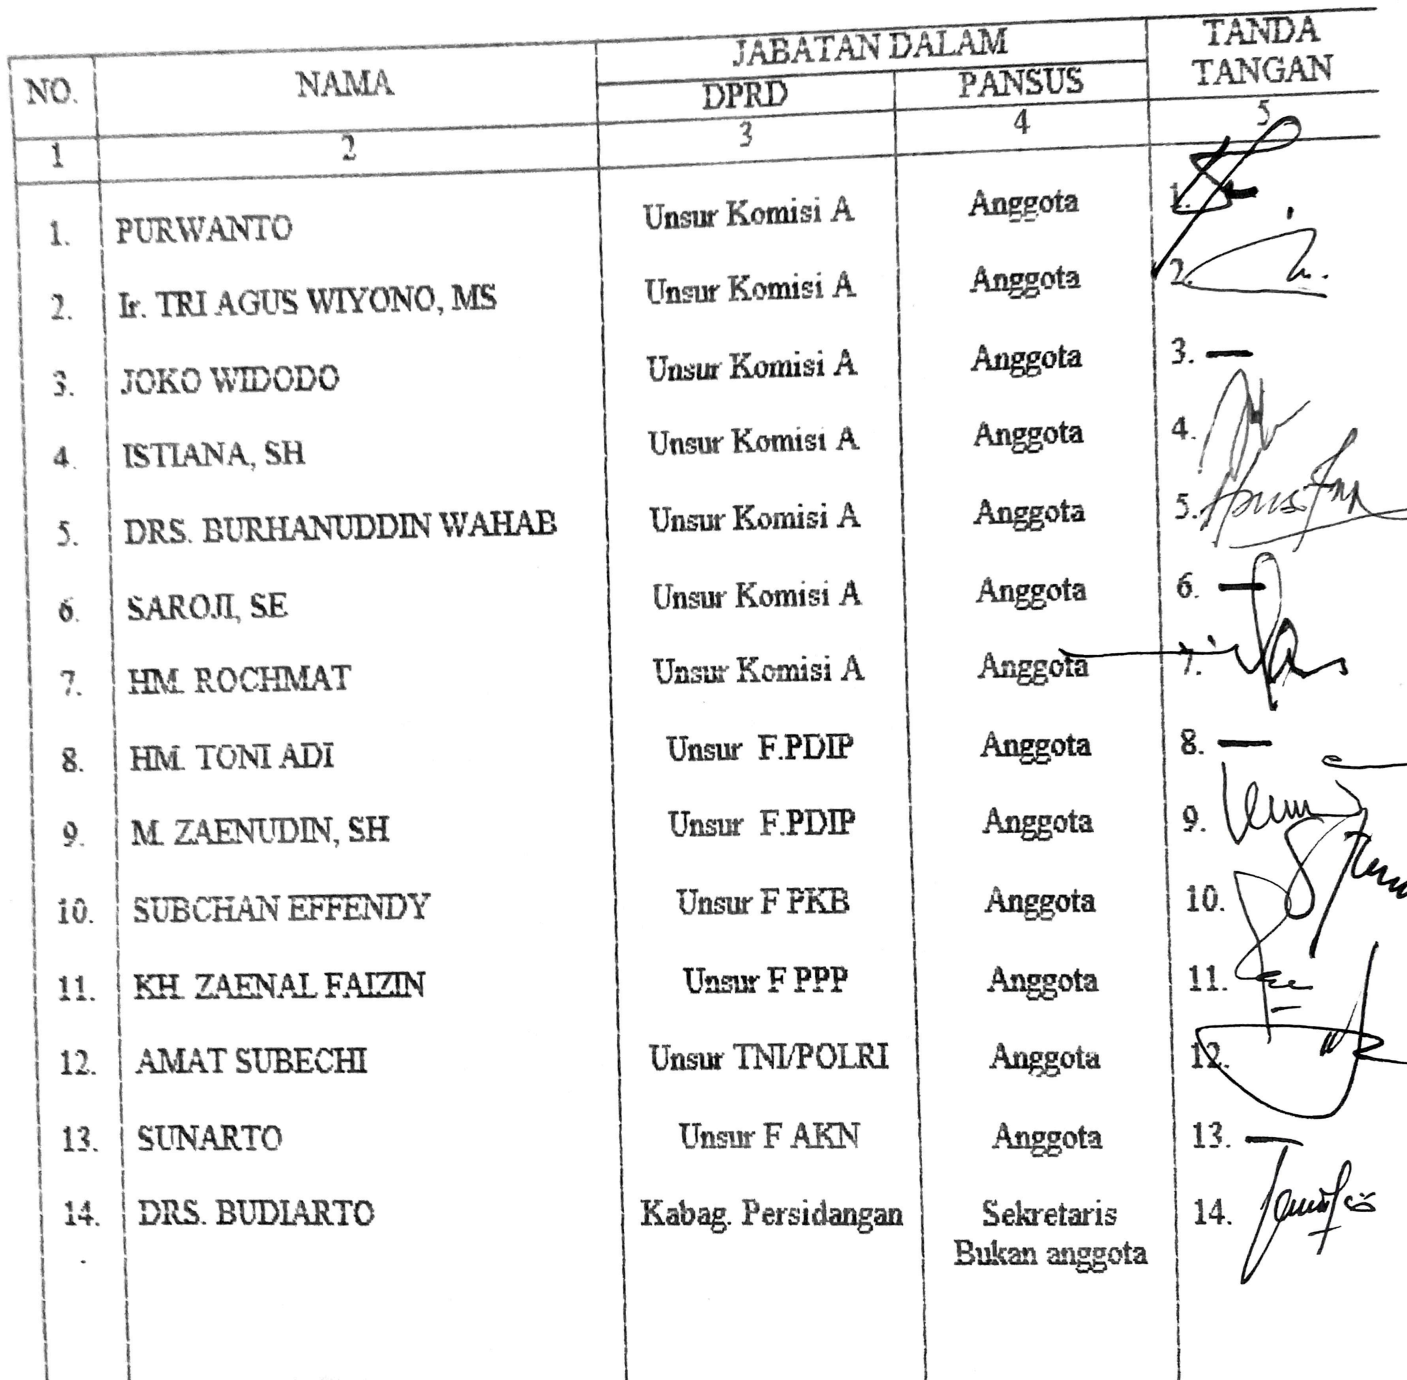 NO. NAMA JABATAN DALAM TANDA TANGAN
DPRD PANSUS
1 2 3 4 5
1. PURWANTO Unsur Komisi A Anggota 1.
2. Ir. TRI AGUS WIYONO, MS Unsur Komisi A Anggota 2.
3. JOKO WIDODO Unsur Komisi A Anggota 3. —
4. ISTIANA, SH Unsur Komisi A Anggota 4.
5. DRS. BURHANUDDIN WAHAB Unsur Komisi A Anggota 5.
6. SAROJI, SE Unsur Komisi A Anggota 6. —
7. HM. ROCHMAT Unsur Komisi A Anggota 7.
8. HM. TONI ADI Unsur F.PDIP Anggota 8. —
9. M. ZAENUDIN, SH Unsur F.PDIP Anggota 9.
10. SUBCHAN EFFENDY Unsur F PKB Anggota 10.
11. KH. ZAENAL FAIZIN Unsur F PPP Anggota 11.
12. AMAT SUBECHI Unsur TNI/POLRI Anggota 12.
13. SUNARTO Unsur F AKN Anggota 13. —
14. DRS. BUDIARTO Kabag. Persidangan Sekretaris 14.
. Bukan anggota